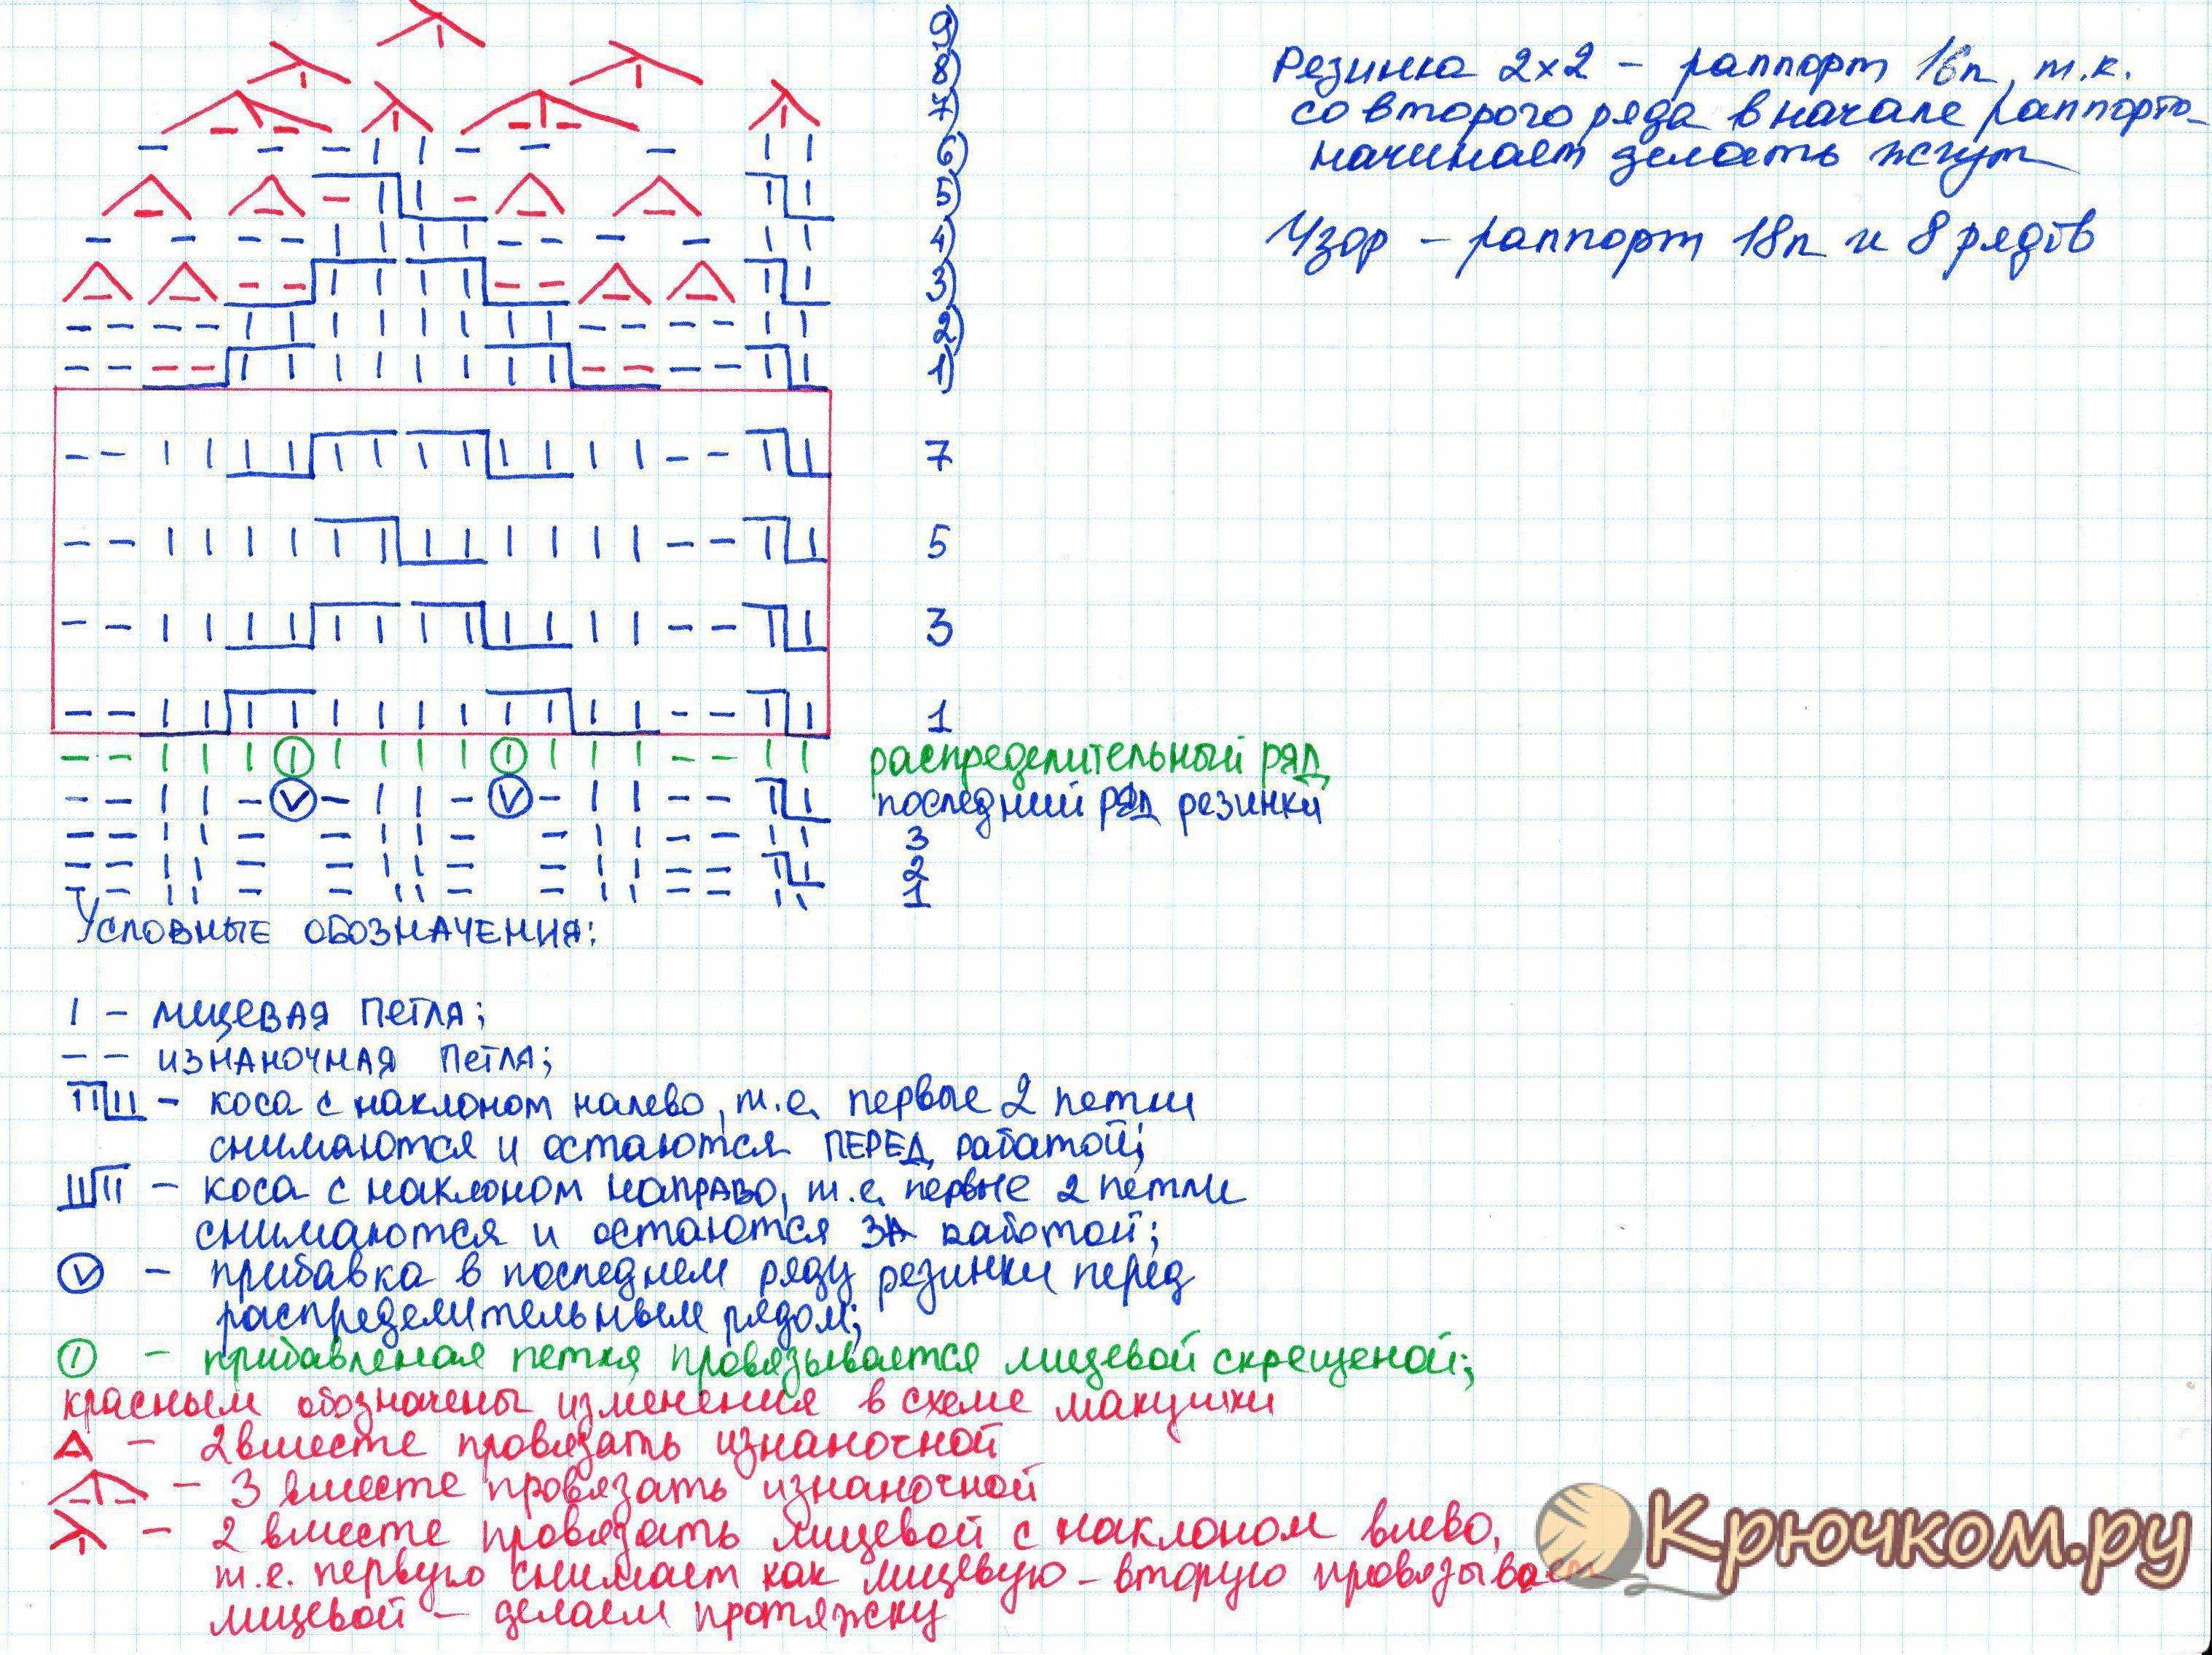 9)
8)
7)
6)
5)
4)
3)
2)
1)
Резинка 2×2 - раппорт 16п, т.к.
со второго ряда в начале раппорта
начинаем делать жгут
Узор - раппорт 18п и 8 рядов
7
5
3
1
распределительный ряд
последний ряд резинки
3
2
1
Условные обозначения:
I - лицевая петля;
- - изнаночная петля;
- коса с наклоном налево, т.е. первые 2 петли
снимаются и остаются ПЕРЕД работой;
- коса с наклоном направо, т.е. первые 2 петли
снимаются и остаются ЗА работой;
V - прибавка в последнем ряду резинки перед
распределительным рядом;
I - прибавленая петля провязывается лицевой скрещеной;
красным обозначены изменения в схеме макушки
- 2 вместе провязать изнаночной
- 3 вместе провязать изнаночной
- 2 вместе провязать лицевой с наклоном влево,
т.е. первую снимает как лицевую - вторую провязываем
лицевой - делаем протяжку
Крючком.ру